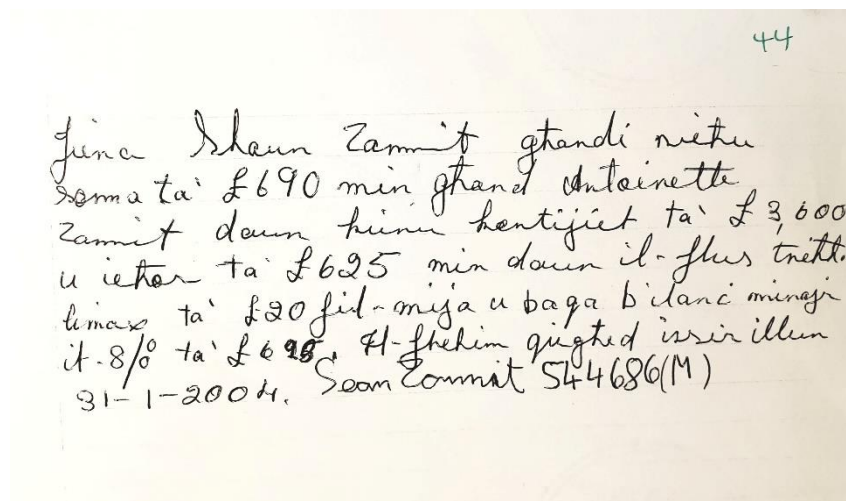 44
Jiena Shaun Zammit ghandi niehu
somma ta' £690 min ghand Antoinette
Zammit dawn huma kontijiet ta' £3,600
u iehor ta' £625 min dawn il-flus tnehh.
ta' £20 fil-mija u baqa bilanc minajr
it-8% ta' £695. Il-ftehim qieghed issir illum
31-1-2004. Sean Zammit 544686(M)